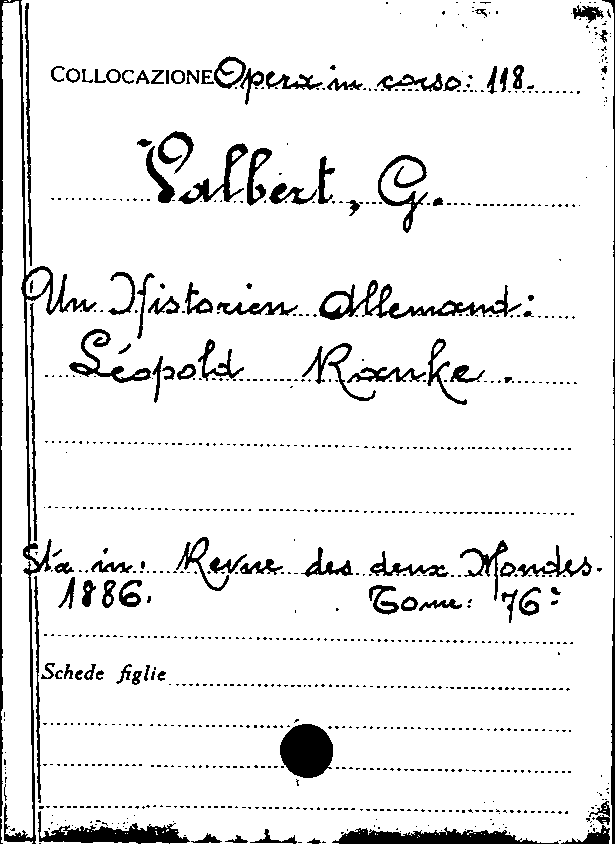 COLLOCAZIONE Opera in corso: 118.
Valbert, G.
Un Historien Allemand:
Léopold Ranke.
Sta in: Revue des deux Mondes.
1886. Tome: 76º
Schede figlie